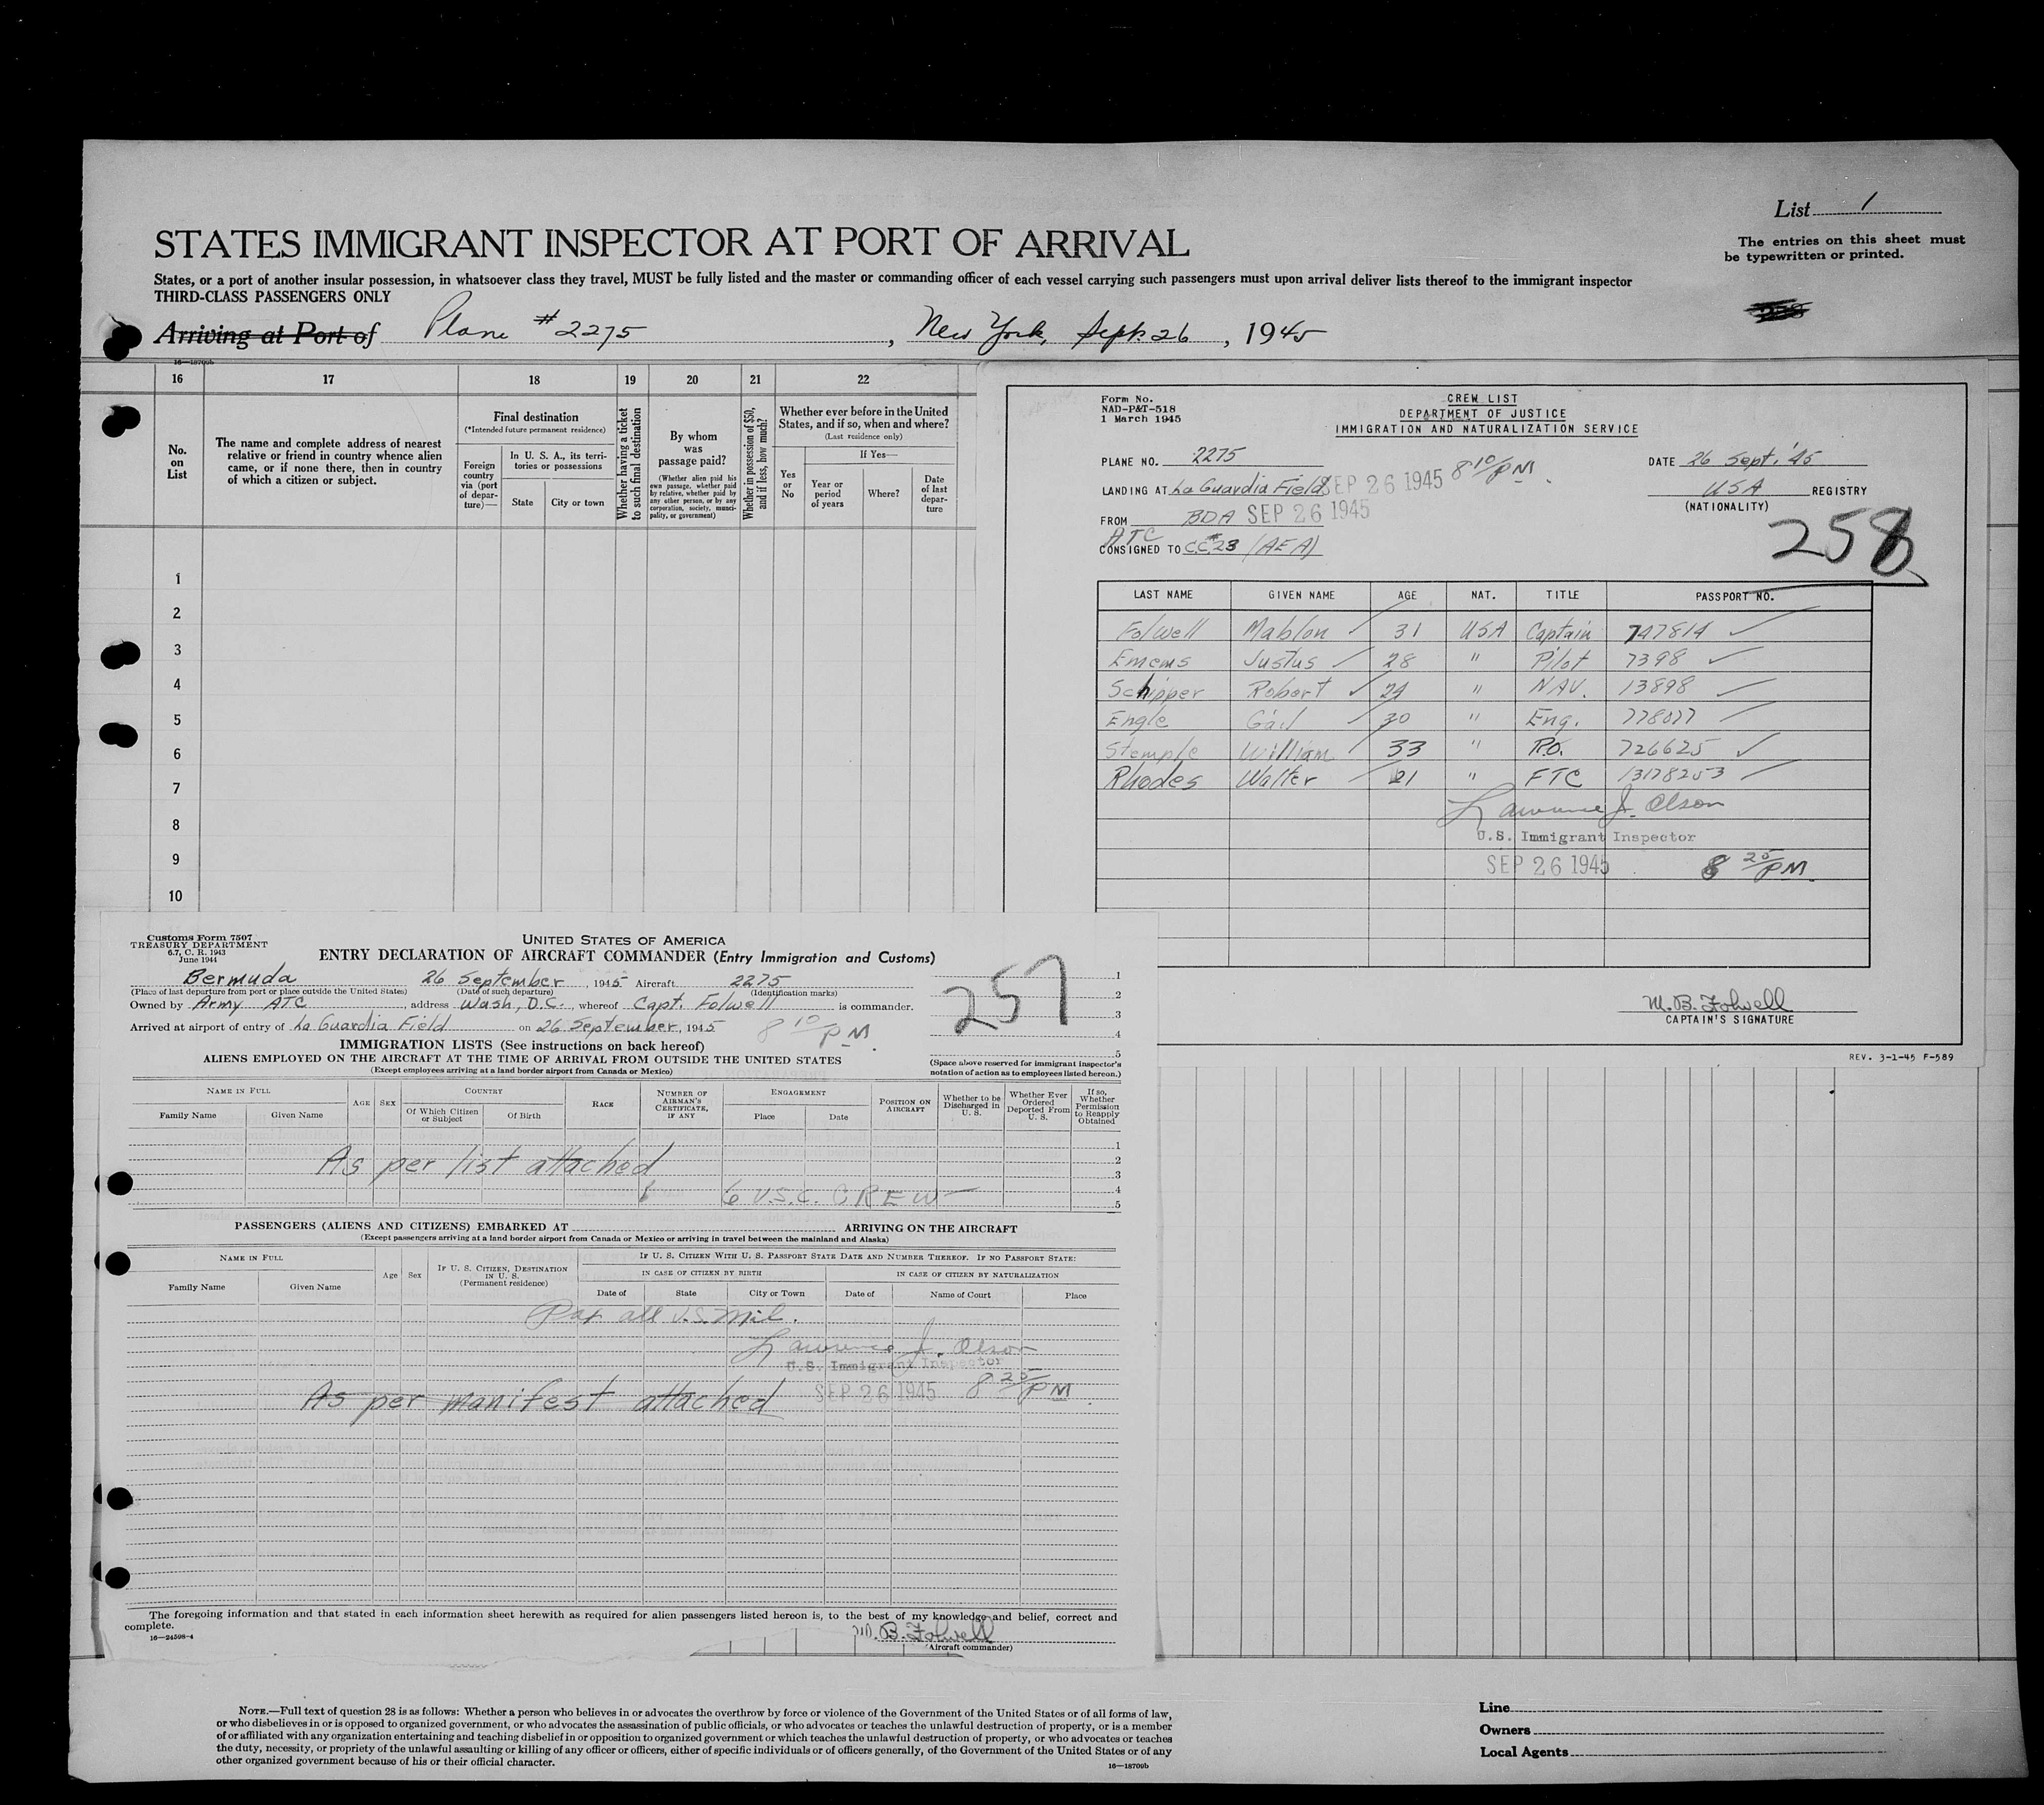 List 1
The entries on this sheet must
be typewritten or printed.
STATES IMMIGRANT INSPECTOR AT PORT OF ARRIVAL
States, or a port of another insular possession, in whatsoever class they travel, MUST be fully listed and the master or commanding officer of each vessel carrying such passengers must upon arrival deliver lists thereof to the immigrant inspector
THIRD-CLASS PASSENGERS ONLY
Arriving at Port of Plane #2275, New York, Sept. 26, 1945
16—18709b
16 17 18 19 20 21 22
No. on List
The name and complete address of nearest
relative or friend in country whence alien
came, or if none there, then in country
of which a citizen or subject.
Final destination
(*Intended future permanent residence)
Foreign country via (port of departure)—
In U. S. A., its territories or possessions
State City or town
Whether having a ticket to such final destination
By whom was passage paid?
(Whether alien paid his own passage, whether paid by relative, whether paid by any other person, or by any corporation, society, municipality, or government)
Whether in possession of $50, and if less, how much?
Whether ever before in the United States, and if so, when and where?
(Last residence only)
Yes or No
If Yes—
Year or period of years Where? Date of last departure
1
2
3
4
5
6
7
8
9
10
Form No.
NAD-P&T-518
1 March 1945
CREW LIST
DEPARTMENT OF JUSTICE
IMMIGRATION AND NATURALIZATION SERVICE
PLANE NO. 2275 DATE 26 Sept. '45
LANDING AT La Guardia Field SEP 26 1945 8 10/PM
USA REGISTRY
(NATIONALITY)
FROM BDA SEP 26 1945
258
ATC
CONSIGNED TO C.C.#23 (AEA)
LAST NAME GIVEN NAME AGE NAT. TITLE PASSPORT NO.
Folwell Mahlon 31 USA Captain 747814
Emems Justus 28 " Pilot 7398
Schipper Robert 24 " NAV. 13898
Engle Gail 30 " Eng. 778077
Stemple William 33 " R.O. 726625
Rhodes Walter 21 " FTC 13178253
Lawrence J. Olson
U.S. Immigrant Inspector
SEP 26 1945 8 25/PM
M. B. Folwell
CAPTAIN'S SIGNATURE
REV. 3-1-45 F-589
Customs Form 7507
TREASURY DEPARTMENT
6.7, C. R. 1943
June 1944
UNITED STATES OF AMERICA
ENTRY DECLARATION OF AIRCRAFT COMMANDER (Entry Immigration and Customs)
Bermuda 26 September, 1945 Aircraft 2275
(Place of last departure from port or place outside the United States) (Date of such departure) (Identification marks)
Owned by Army ATC, address Wash, D.C., whereof Capt. Folwell is commander.
Arrived at airport of entry of La Guardia Field on 26 September, 1945 8 10/PM
257
1
2
3
4
5
(Space above reserved for immigrant inspector's
notation of action as to employees listed hereon.)
IMMIGRATION LISTS (See instructions on back hereof)
ALIENS EMPLOYED ON THE AIRCRAFT AT THE TIME OF ARRIVAL FROM OUTSIDE THE UNITED STATES
(Except employees arriving at a land border airport from Canada or Mexico)
NAME IN FULL
Family Name Given Name
AGE SEX
COUNTRY
Of Which Citizen or Subject Of Birth
RACE
NUMBER OF AIRMAN'S CERTIFICATE, IF ANY
ENGAGEMENT
Place Date
POSITION ON AIRCRAFT
Whether to be Discharged in U. S.
Whether Ever Ordered Deported From U. S.
If so, Whether Permission to Reapply Obtained
1
2
3
4
5
As per list attached
6 U.S.C. CREW
PASSENGERS (ALIENS AND CITIZENS) EMBARKED AT ARRIVING ON THE AIRCRAFT
(Except passengers arriving at a land border airport from Canada or Mexico or arriving in travel between the mainland and Alaska)
NAME IN FULL
Family Name Given Name
Age Sex
IF U. S. CITIZEN, DESTINATION IN U. S.
(Permanent residence)
IF U. S. CITIZEN WITH U. S. PASSPORT STATE DATE AND NUMBER THEREOF. IF NO PASSPORT STATE:
IN CASE OF CITIZEN BY BIRTH IN CASE OF CITIZEN BY NATURALIZATION
Date of State City or Town Date of Name of Court Place
Pax all U.S. Mil.
Lawrence J. Olson
U.S. Immigrant Inspector
As per manifest attached SEP 26 1945 8 25/PM
The foregoing information and that stated in each information sheet herewith as required for alien passengers listed hereon is, to the best of my knowledge and belief, correct and
complete.
16—24598-4
M. B. Folwell
(Aircraft commander)
NOTE.—Full text of question 28 is as follows: Whether a person who believes in or advocates the overthrow by force or violence of the Government of the United States or of all forms of law,
or who disbelieves in or is opposed to organized government, or who advocates the assassination of public officials, or who advocates or teaches the unlawful destruction of property, or is a member
of or affiliated with any organization entertaining and teaching disbelief in or opposition to organized government or which teaches the unlawful destruction of property, or who advocates or teaches
the duty, necessity, or propriety of the unlawful assaulting or killing of any officer or officers, either of specific individuals or of officers generally, of the Government of the United States or of any
other organized government because of his or their official character.
16—18709b
Line
Owners
Local Agents